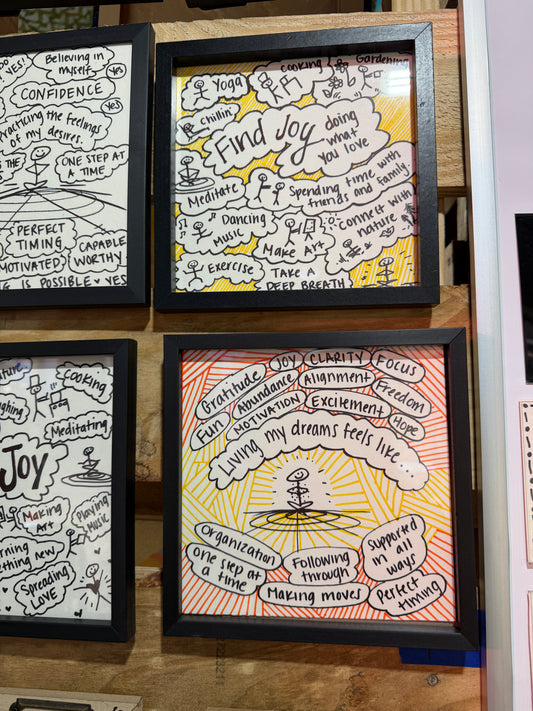 YES!
Believing in
myself
YES
CONFIDENCE
YES
Practicing the feelings
of my desires.
THE
ONE STEP AT
A TIME
PERFECT
TIMING
MOTIVATED
CAPABLE
WORTHY
IS POSSIBLE ♥ YES
Yoga
Cooking
Gardening
Chillin
Find Joy
doing
what
you love
Meditate
Spending time with
friends and family.
Dancing
Music
Make Art
Connect with
nature
Exercise
TAKE A
DEEP BREATH
Cooking
Meditating
JOY
Making
Art
Playing
Music
Spreading
LOVE
Gratitude
JOY
CLARITY
FOCUS
Fun
Abundance
Alignment
Freedom
MOTIVATION
Excitement
Hope
Living my dreams feels like...
Organization
one step at
a time
Following
through
Supported
in all
ways
Making moves
Perfect
timing